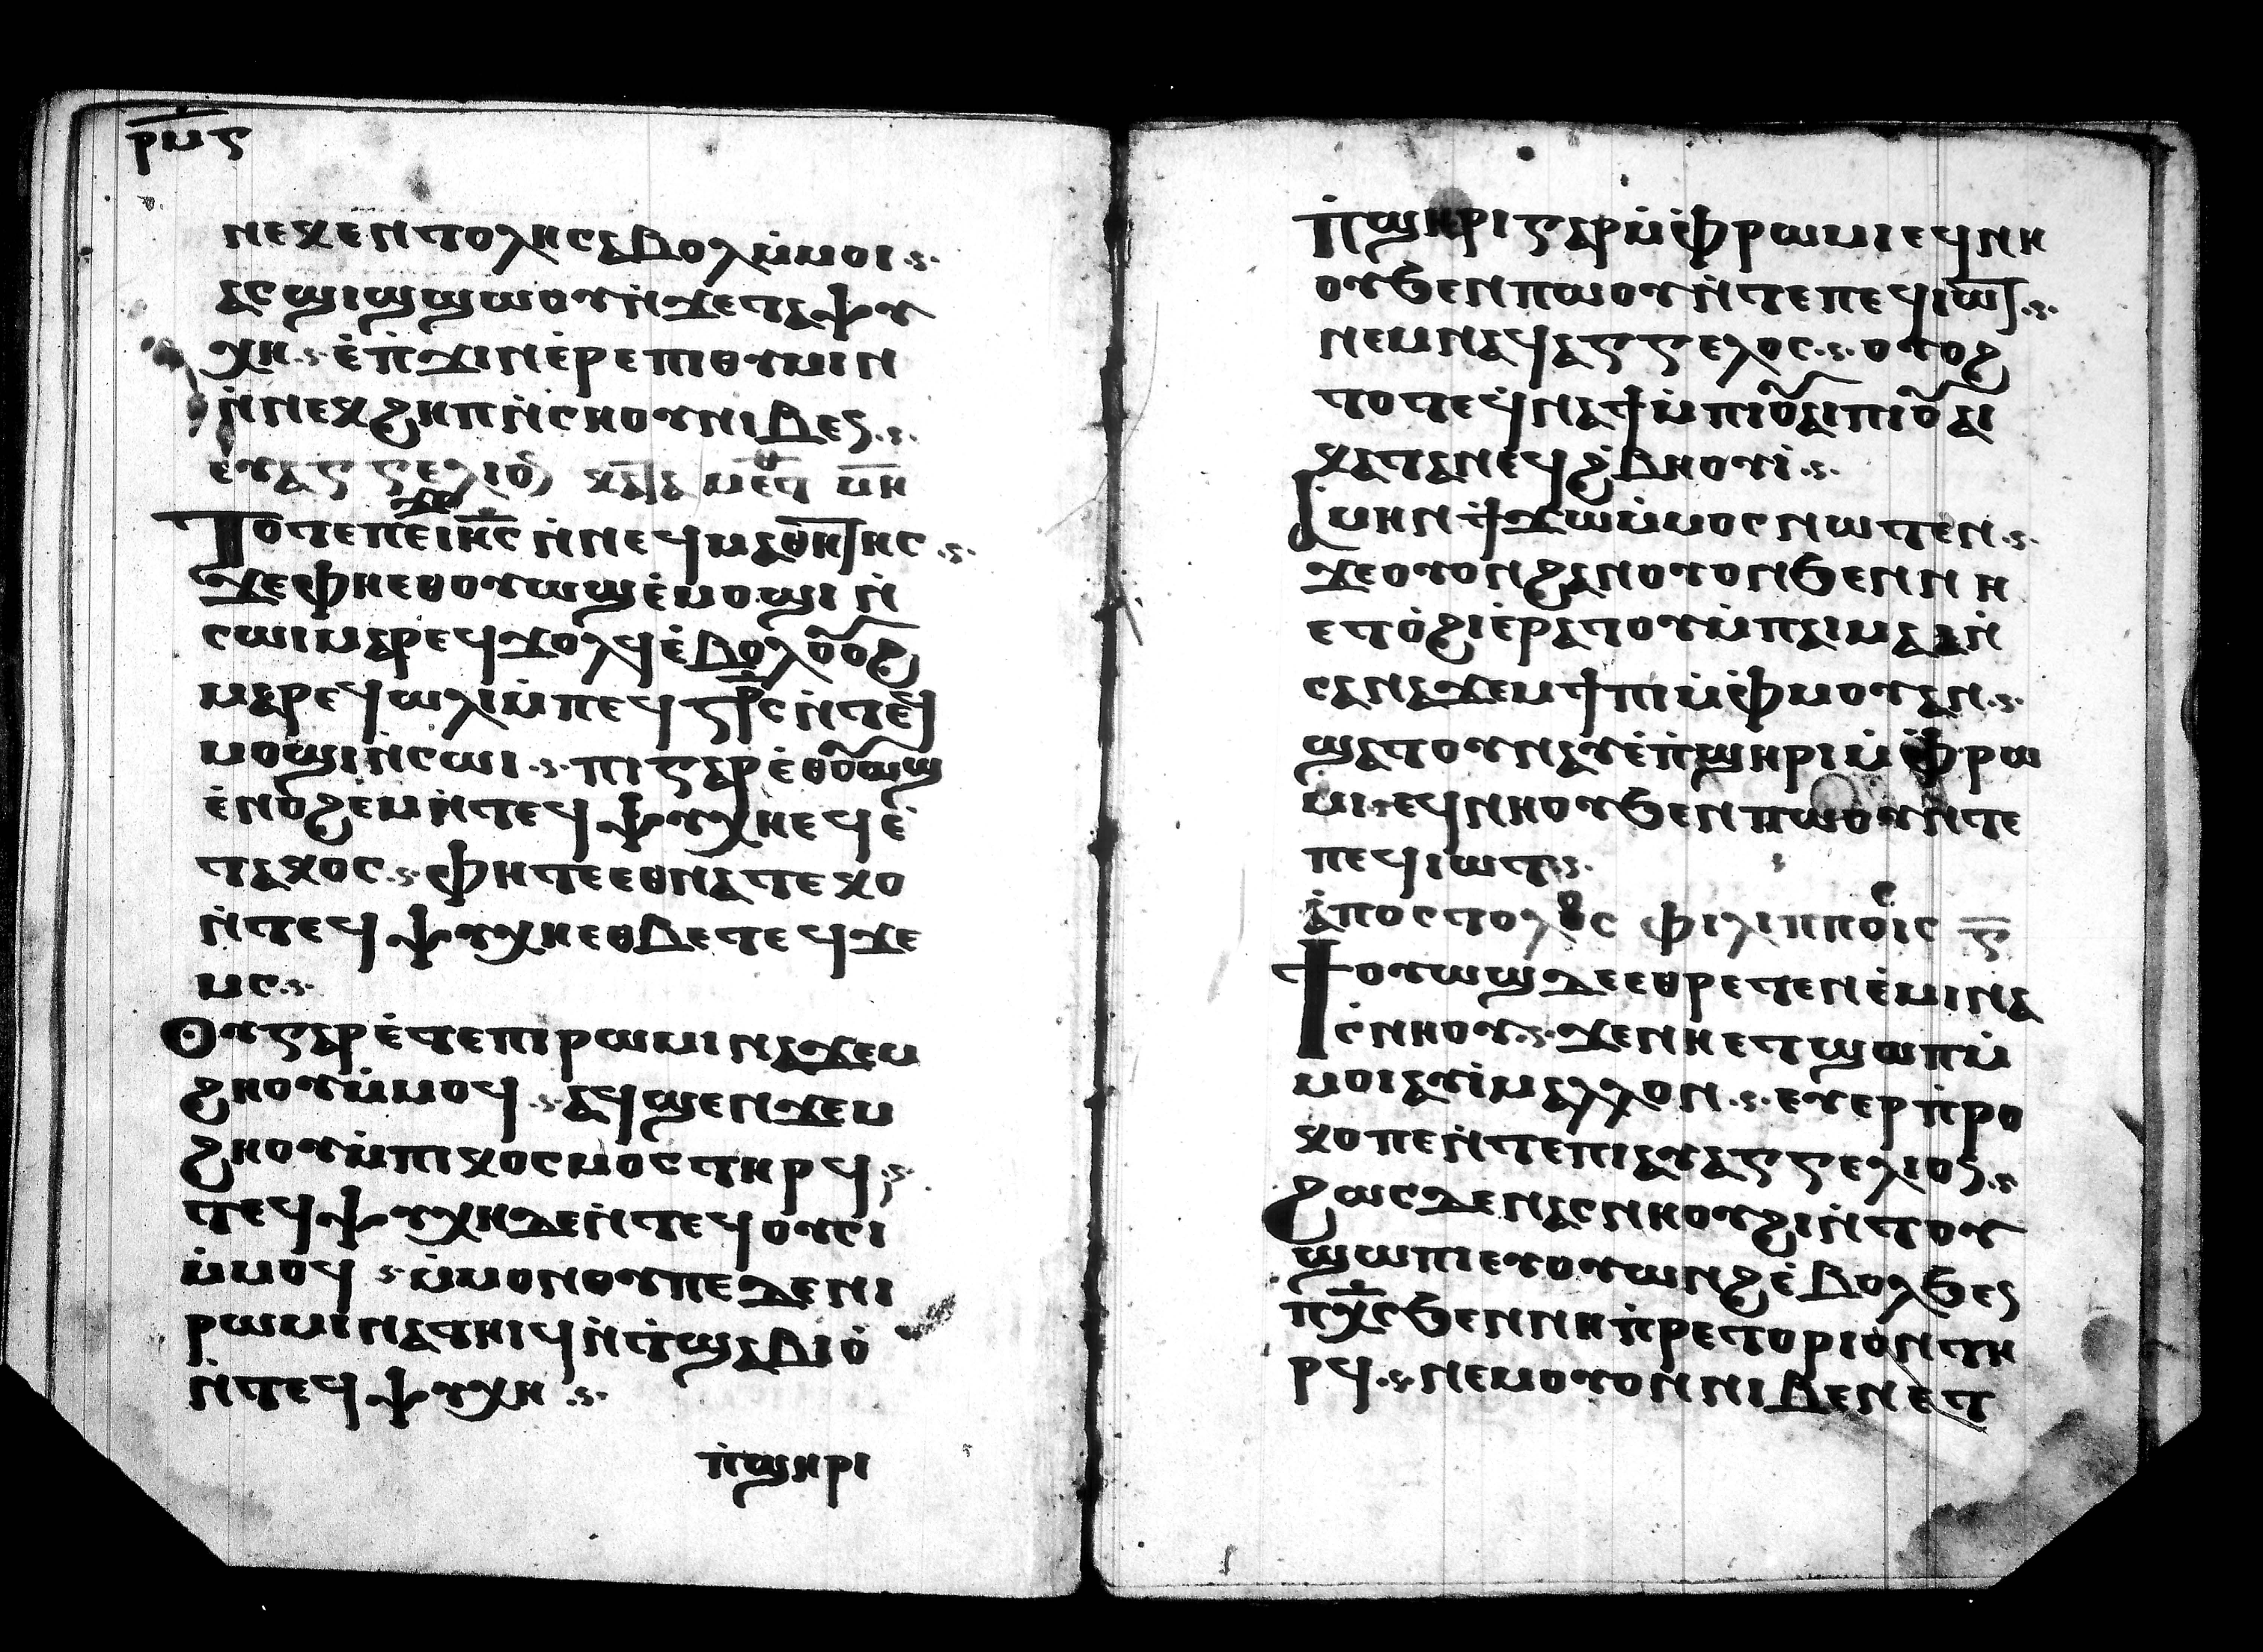 ⲣⲙⲋ
ⲛⲉⲕⲉⲛⲧⲟⲗⲏⲥⲁⲃⲟⲗⲙ̀ⲙⲟⲓ
ⲁⲥϣⲓϣϣⲱⲟⲩⲛ̀ϫⲉⲧⲁⲯⲩ
ⲭⲏ ⲉ̀ⲡ̀ϫⲓⲛⲉ̀ⲣⲉⲡⲓⲑⲩⲙⲓⲛ
ⲛ̀ⲛⲉⲕϩⲏⲡⲛ̀ⲥⲏⲟⲩⲛⲓⲃⲉⲛ
ⲧⲟⲧⲉⲡⲉϫⲉⲓⲏ̅ⲥ ⲛ̀ⲛⲉϥⲙⲁⲑⲏⲧⲏⲥ
ϫⲉⲫⲏⲉⲑⲟⲩⲱϣⲉ̀ⲙⲟϣⲓ ⲛ̀
ⲥⲱⲓⲙⲁⲣⲉϥϫⲟⲗϥⲉ̀ⲃⲟⲗⲟⲩⲟϩ
ⲙⲁⲣⲉϥⲱⲗⲓⲙ̀ⲡⲉϥⳁⲥⲛ̀ⲧⲉϥ
ⲙⲟϣⲓⲛ̀ⲥⲱⲓ ⲡⲓⲅⲁⲣⲉ̀ⲑⲟⲩⲱϣ
ⲉ̀ⲛⲟϩⲉⲙⲛ̀ⲧⲉϥⲯⲩⲭⲏⲉϥⲉ̀
ⲧⲁⲕⲟⲥ ⲫⲏⲧⲉⲉⲑⲛⲁⲧⲉⲕⲟ
ⲛ̀ⲧⲉϥⲯⲩⲭⲏⲉⲑⲃⲉⲧⲉϥϫⲉ
ⲙⲥ
ⲟⲩⲅⲁⲣⲉ̀ⲧⲉⲡⲓⲣⲱⲙⲓⲛⲁϫⲉⲙ
ϩⲏⲟⲩⲙ̀ⲙⲟϥ ⲁϥϣⲉⲛϫⲉⲙ
ϩⲏⲟⲩⲙ̀ⲡⲓⲕⲟⲥⲙⲟⲥⲧⲏⲣϥ
ⲧⲉϥⲯⲩⲭⲏⲇⲉⲛ̀ⲧⲉϥⲟⲩⲥⲓ
ⲙ̀ⲙⲟϥ ⲙ̀ⲙⲟⲛⲟⲩⲡⲉⲇⲉⲛⲓ
ⲣⲱⲙⲓⲛⲁⲧⲏⲓϥⲛ̀ⲧ̀ϣⲁⲃⲓⲟ̀
ⲛ̀ⲧⲉϥⲯⲩⲭⲏ
ⲡ̀ϣⲏⲣⲓ
ⲡ̀ϣⲏⲣⲓⲅⲁⲣⲙ̀ⲫ̀ⲣⲱⲙⲓⲉϥⲛⲏ
ⲟⲩϧⲉⲛⲡⲱⲟⲩⲛ̀ⲧⲉⲡⲉϥⲓⲱⲧ
ⲛⲉⲙⲛⲁϥⲁⲅⲅⲉⲗⲟⲥ ⲟⲩⲟϩ
ⲧⲟⲧⲉϥⲛⲁϯⲙ̀ⲡⲓⲟⲩⲁⲓⲡⲓⲟⲩⲁⲓ
ⲕⲁⲧⲁⲛⲉϥϩ̀ⲃⲏⲟⲩⲓ̀
ⲁⲙⲏⲛϯϫⲱⲙ̀ⲙⲟⲥⲛⲱⲧⲉⲛ
ϫⲉⲟⲩⲟⲛϩⲁⲛⲟⲩⲟⲛϧⲉⲛⲛⲏ
ⲉⲧⲟ̀ϩⲓⲉ̀ⲣⲁⲧⲟⲩⲙ̀ⲡⲁⲓⲙⲁⲁⲛ̀
ⲥⲁⲛⲁϫⲉⲙϯⲡⲓⲙ̀ⲫ̀ⲙⲟⲩⲁⲛ
ϣⲁⲧⲟⲩⲛⲁⲩⲉ̀ⲡ̀ϣⲏⲣⲓⲙ̀ⲫ̀ⲣⲱ
ⲙⲓⲉϥⲛⲏⲟⲩϧⲉⲛⲡⲱⲟⲩⲛ̀ⲧⲉ
ⲡⲉϥⲓⲱⲧ
ⲁ̀ⲡⲟⲥⲧⲟⲗⲟⲥ ⲫⲓⲗⲓⲡⲡⲟⲓⲥ
ϯⲟⲩⲱϣⲇⲉⲉⲑⲣⲉⲧⲉⲛⲉ̀ⲙⲓⲛⲁ
ⲥ̀ⲛⲏⲟⲩ ϫⲉⲛⲏⲉⲧϣⲱⲡⲙ̀
ⲙⲟⲓⲁⲩⲓ̀ⲙⲁⲗⲗⲟⲛ ⲉⲩⲉⲣⲡ̀ⲣⲟ
ⲕⲟⲡⲉⲛ̀ⲧⲉⲡⲓⲁⲩⲁⲅⲅⲉⲗⲓⲟⲛ
ϩⲱⲥⲇⲉⲛⲁⲥⲛⲏⲟⲩϩⲓⲛ̀ⲧⲟⲩ
ϣⲱⲡⲓⲉⲩⲟⲩⲱⲛϩⲉ̀ⲃⲟⲗϧⲉⲛ
ⲡⲭ̅ⲥϧⲉⲛⲛⲏⲡ̀ⲣⲉⲧⲟⲣⲓⲟⲛⲧⲏ
ⲣϥ ⲛⲉⲙⲟⲩⲟⲛⲛⲓⲃⲉⲛⲉⲧ